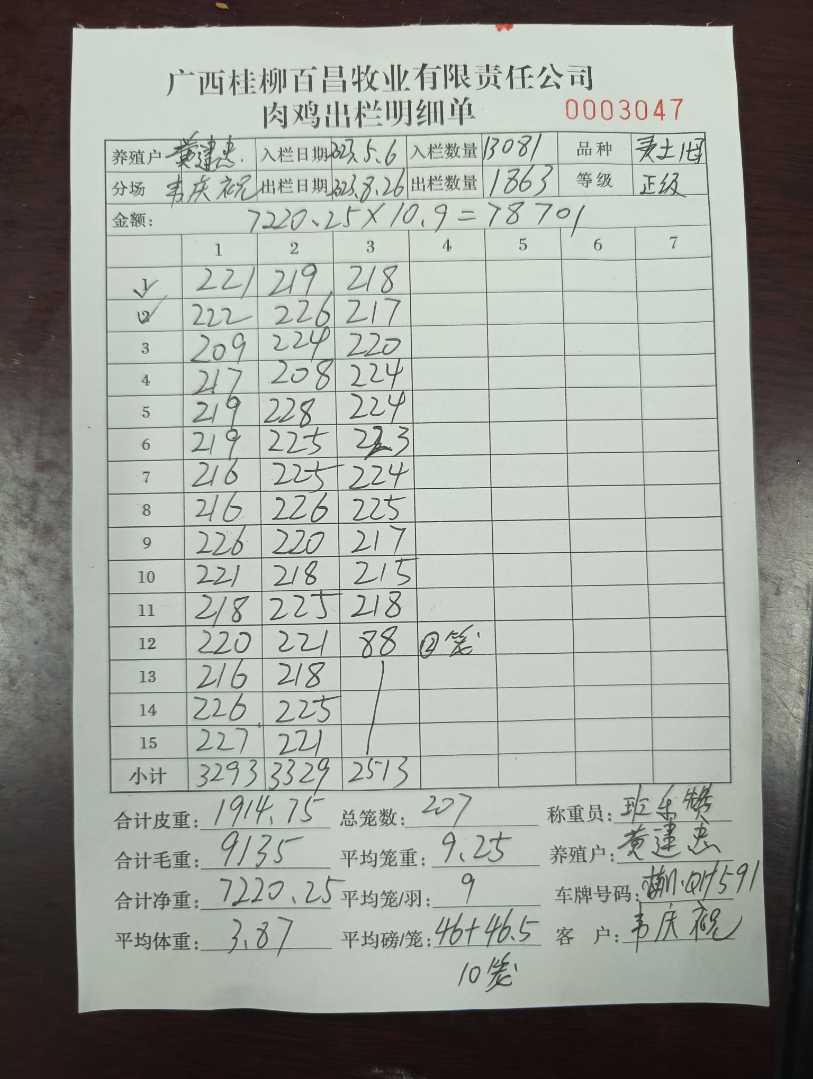 广西桂柳百昌牧业有限责任公司
肉鸡出栏明细单 0003047
养殖户 黄建惠 入栏日期 2023.5.6 入栏数量 13081 品种
分场 韦庆祝 出栏日期 2023.8.26 出栏数量 1863 等级 正级
金额: 7220.25×10.9=78701
1 2 3 4 5 6 7
1 221 219 218
2 222 226 217
3 209 224 220
4 217 208 224
5 219 228 224
6 219 225 223
7 216 225 224
8 216 226 225
9 226 220 217
10 221 218 215
11 218 225 218
12 220 221 88 ②笼
13 216 218
14 226 225
15 227 221
小计 3293 3329 2513
合计皮重: 1914.75 总笼数: 207 称重员:
合计毛重: 9135 平均笼重: 9.25 养殖户: 黄建惠
合计净重: 7220.25 平均笼/羽: 9 车牌号码:
平均体重: 3.87 平均磅/笼: 46+46.5 客 户: 韦庆祝
10笼